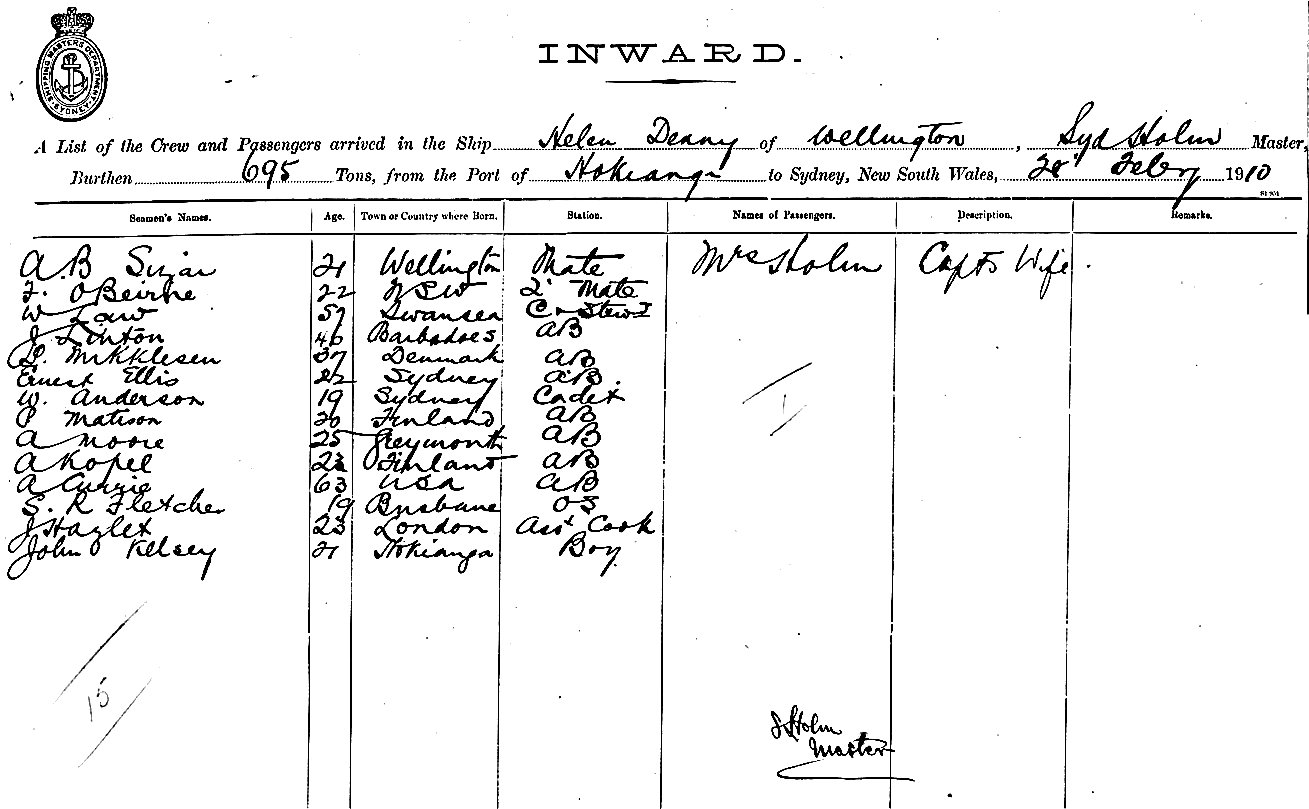 SHIPPING MASTERS DEPARTMENT SYDNEY
INWARD.
A List of the Crew and Passengers arrived in the Ship Helen Denny of Wellington, Syd Holm Master,
Burthen 695 Tons, from the Port of Hokianga to Sydney, New South Wales, 28th Febry 1910
Seamen's Names. Age. Town or Country where Born. Station. Names of Passengers. Description. Remarks.
A.B 21 Wellington Mate Mrs Holm Capts Wife
F. OBeirne 22 NSW 2d Mate
W Law 57 Swansea C & Stewd
J Linton 46 Barbadoes AB
P. Mikklesen 37 Denmark AB
Ernest Ellis 22 Sydney AB.
W. Anderson 19 Sydney Cadet
P Matison 20 Finland AB
A Moore 25 Greymouth AB
A Kopel 22 Finland AB
A Currie 63 USA AB
S. R Fletcher 19 Brisbane OS
J Hazlet 23 London Asst Cook
John Kelsey 21 Hokianga Boy
1
15
S Holm
Master